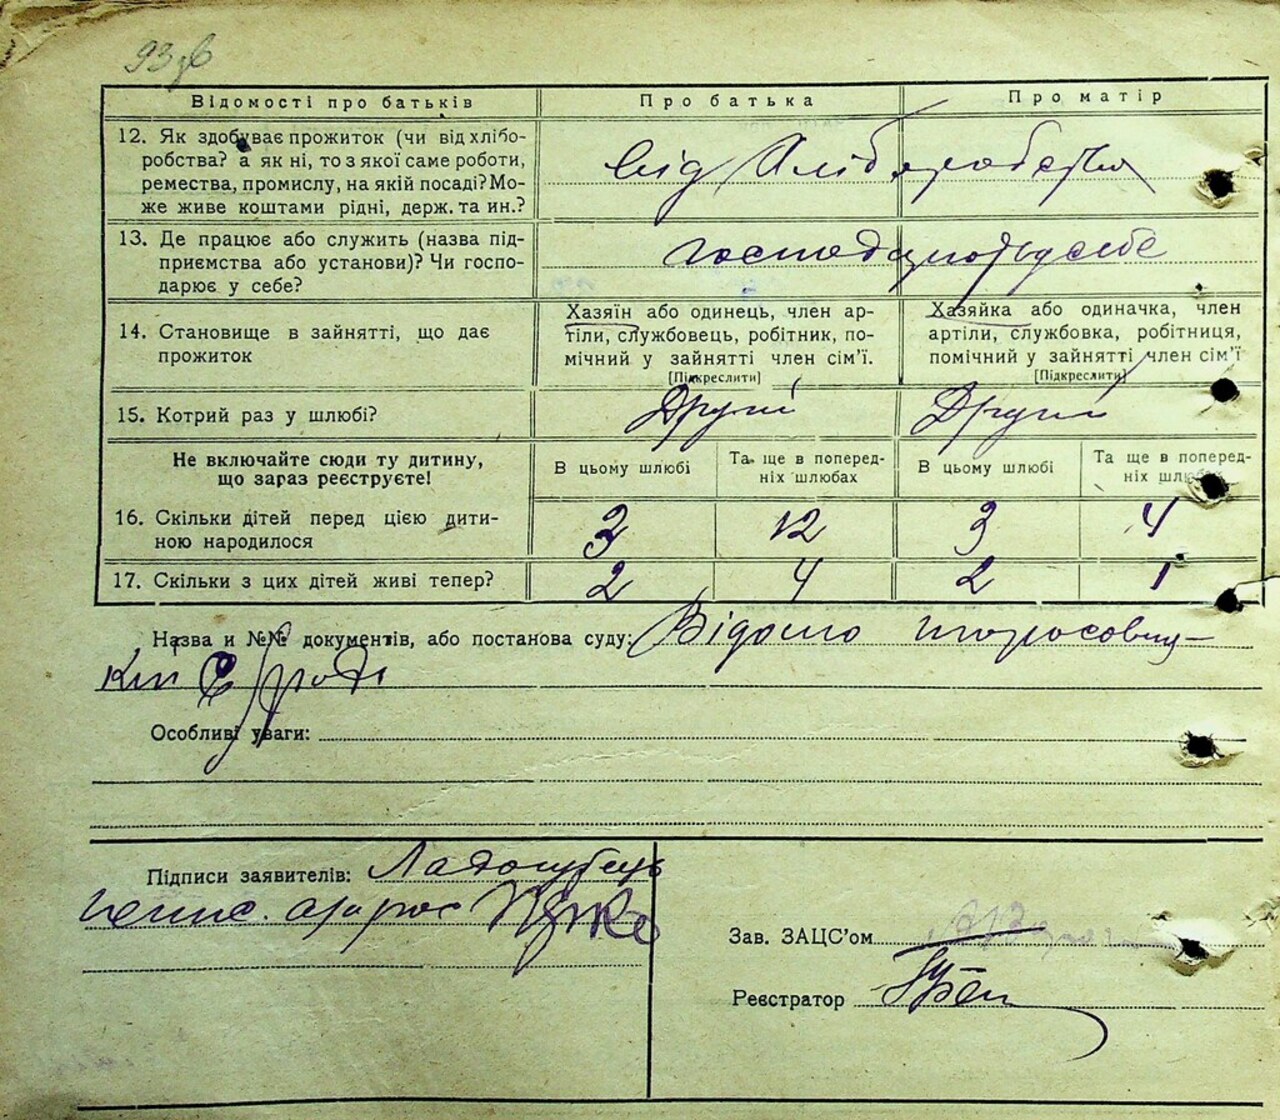 93зв
Відомості про батьків
Про батька
Про матір
12. Як здобуває прожиток (чи від хлібо-
робства? а як ні, то з якої саме роботи,
ремества, промислу, на якій посаді? Мо-
же живе коштами рідні, держ. та ин.?
від Хліборобства
13. Де працює або служить (назва під-
приємства або установи)? Чи госпо-
дарює у себе?
14. Становище в зайнятті, що дає
прожиток
Хазяїн або одинець, член ар-
тіли, службовець, робітник, по-
мічний у зайнятті член сім’ї.
[Підкреслити]
Хазяйка або одиначка, член
артіли, службовка, робітниця,
помічний у зайнятті член сім’ї
[Підкреслити]
15. Котрий раз у шлюбі?
Другий
Другий
Не включайте сюди ту дитину,
що зараз реєструєте!
В цьому шлюбі
Та ще в поперед-
ніх шлюбах
В цьому шлюбі
Та ще в поперед-
ніх шлюбах
16. Скільки дітей перед цією дити-
ною народилося
3 12 3 4
17. Скільки з цих дітей живі тепер?
2 4 2 1
Назва и №№ документів, або постанова суду: Відомо
Особливі уваги:
Підписи заявителів:
Зав. ЗАЦС’ом
Реєстратор